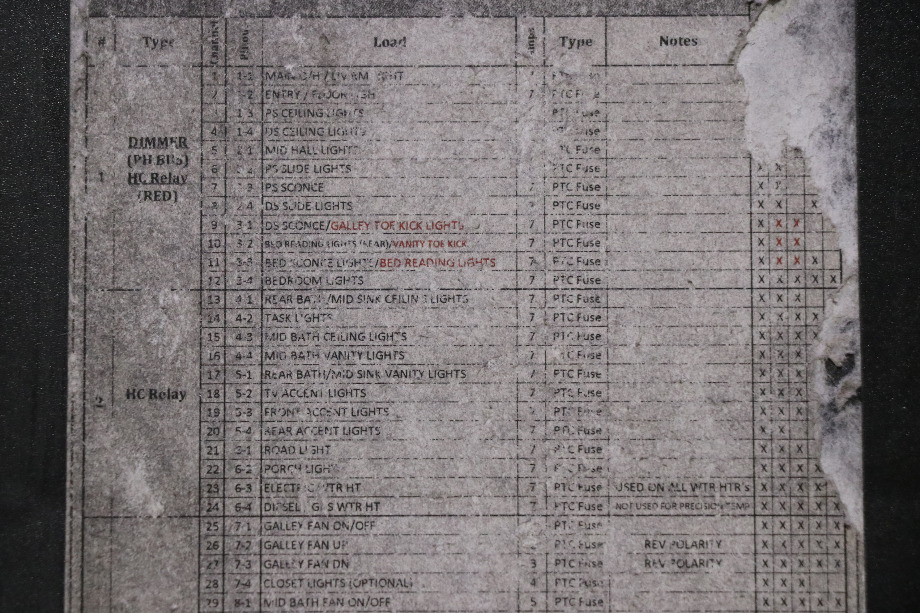 # Type Channel Load Amps Type Notes
1 1-1 LIGHT
2 ENTRY / FLOOR 7 PTC Fuse
1-3 PS CEILING LIGHTS PTC Fuse
4 1-4 DS CEILING LIGHTS Fuse
DIMMER
5 2-1 MID HALL LIGHTS PTC Fuse
(PH BUS)
6 PS SLIDE LIGHTS PTC Fuse X X
1 HC Relay
7 PS SCONCE 7 PTC Fuse X X
(RED)
8 2-4 DS SLIDE LIGHTS PTC Fuse X X X
9 3-1 DS SCONCE/GALLEY TOE KICK LIGHTS 7 PTC Fuse X X X
10 3-2 BED READING LIGHTS (REAR)/VANITY TOE KICK 7 PTC Fuse X X X
11 3-3 BED SCONCE LIGHTS/BED READING LIGHTS 7 PTC Fuse X X X X
12 3-4 BEDROOM LIGHTS 7 PTC Fuse X X X X X
13 4-1 REAR BATH/MID SINK CEILING LIGHTS 7 PTC Fuse X X X
14 4-2 TASK LIGHTS 7 PTC Fuse X X X
15 4-3 MID BATH CEILING LIGHTS 7 PTC Fuse X X X
16 4-4 MID BATH VANITY LIGHTS 7 PTC Fuse X X X
17 5-1 REAR BATH/MID SINK VANITY LIGHTS 7 PTC Fuse X X X
2 HC Relay
18 5-2 TV ACCENT LIGHTS 7 PTC Fuse X X X
19 5-3 FRONT ACCENT LIGHTS 7 PTC Fuse X X
20 5-4 REAR ACCENT LIGHTS 7 PTC Fuse X X
21 6-1 ROAD LIGHT 7 PTC Fuse X X X
22 6-2 PORCH LIGHT 7 PTC Fuse X X X X
23 6-3 ELECTRIC WTR HT 7 PTC Fuse USED ON ALL WTR HTR's X X X X
24 6-4 DIESEL / GAS WTR HT 7 PTC Fuse NOT USED FOR PRECISION TEMP X X X X X
25 7-1 GALLEY FAN ON/OFF PTC Fuse X X X X X
26 7-2 GALLEY FAN UP PTC Fuse REV POLARITY X X X X X
27 7-3 GALLEY FAN DN 3 PTC Fuse REV POLARITY X X X X X
28 7-4 CLOSET LIGHTS (OPTIONAL) 4 PTC Fuse X X X
29 8-1 MID BATH FAN ON/OFF 5 PTC Fuse X X X X X